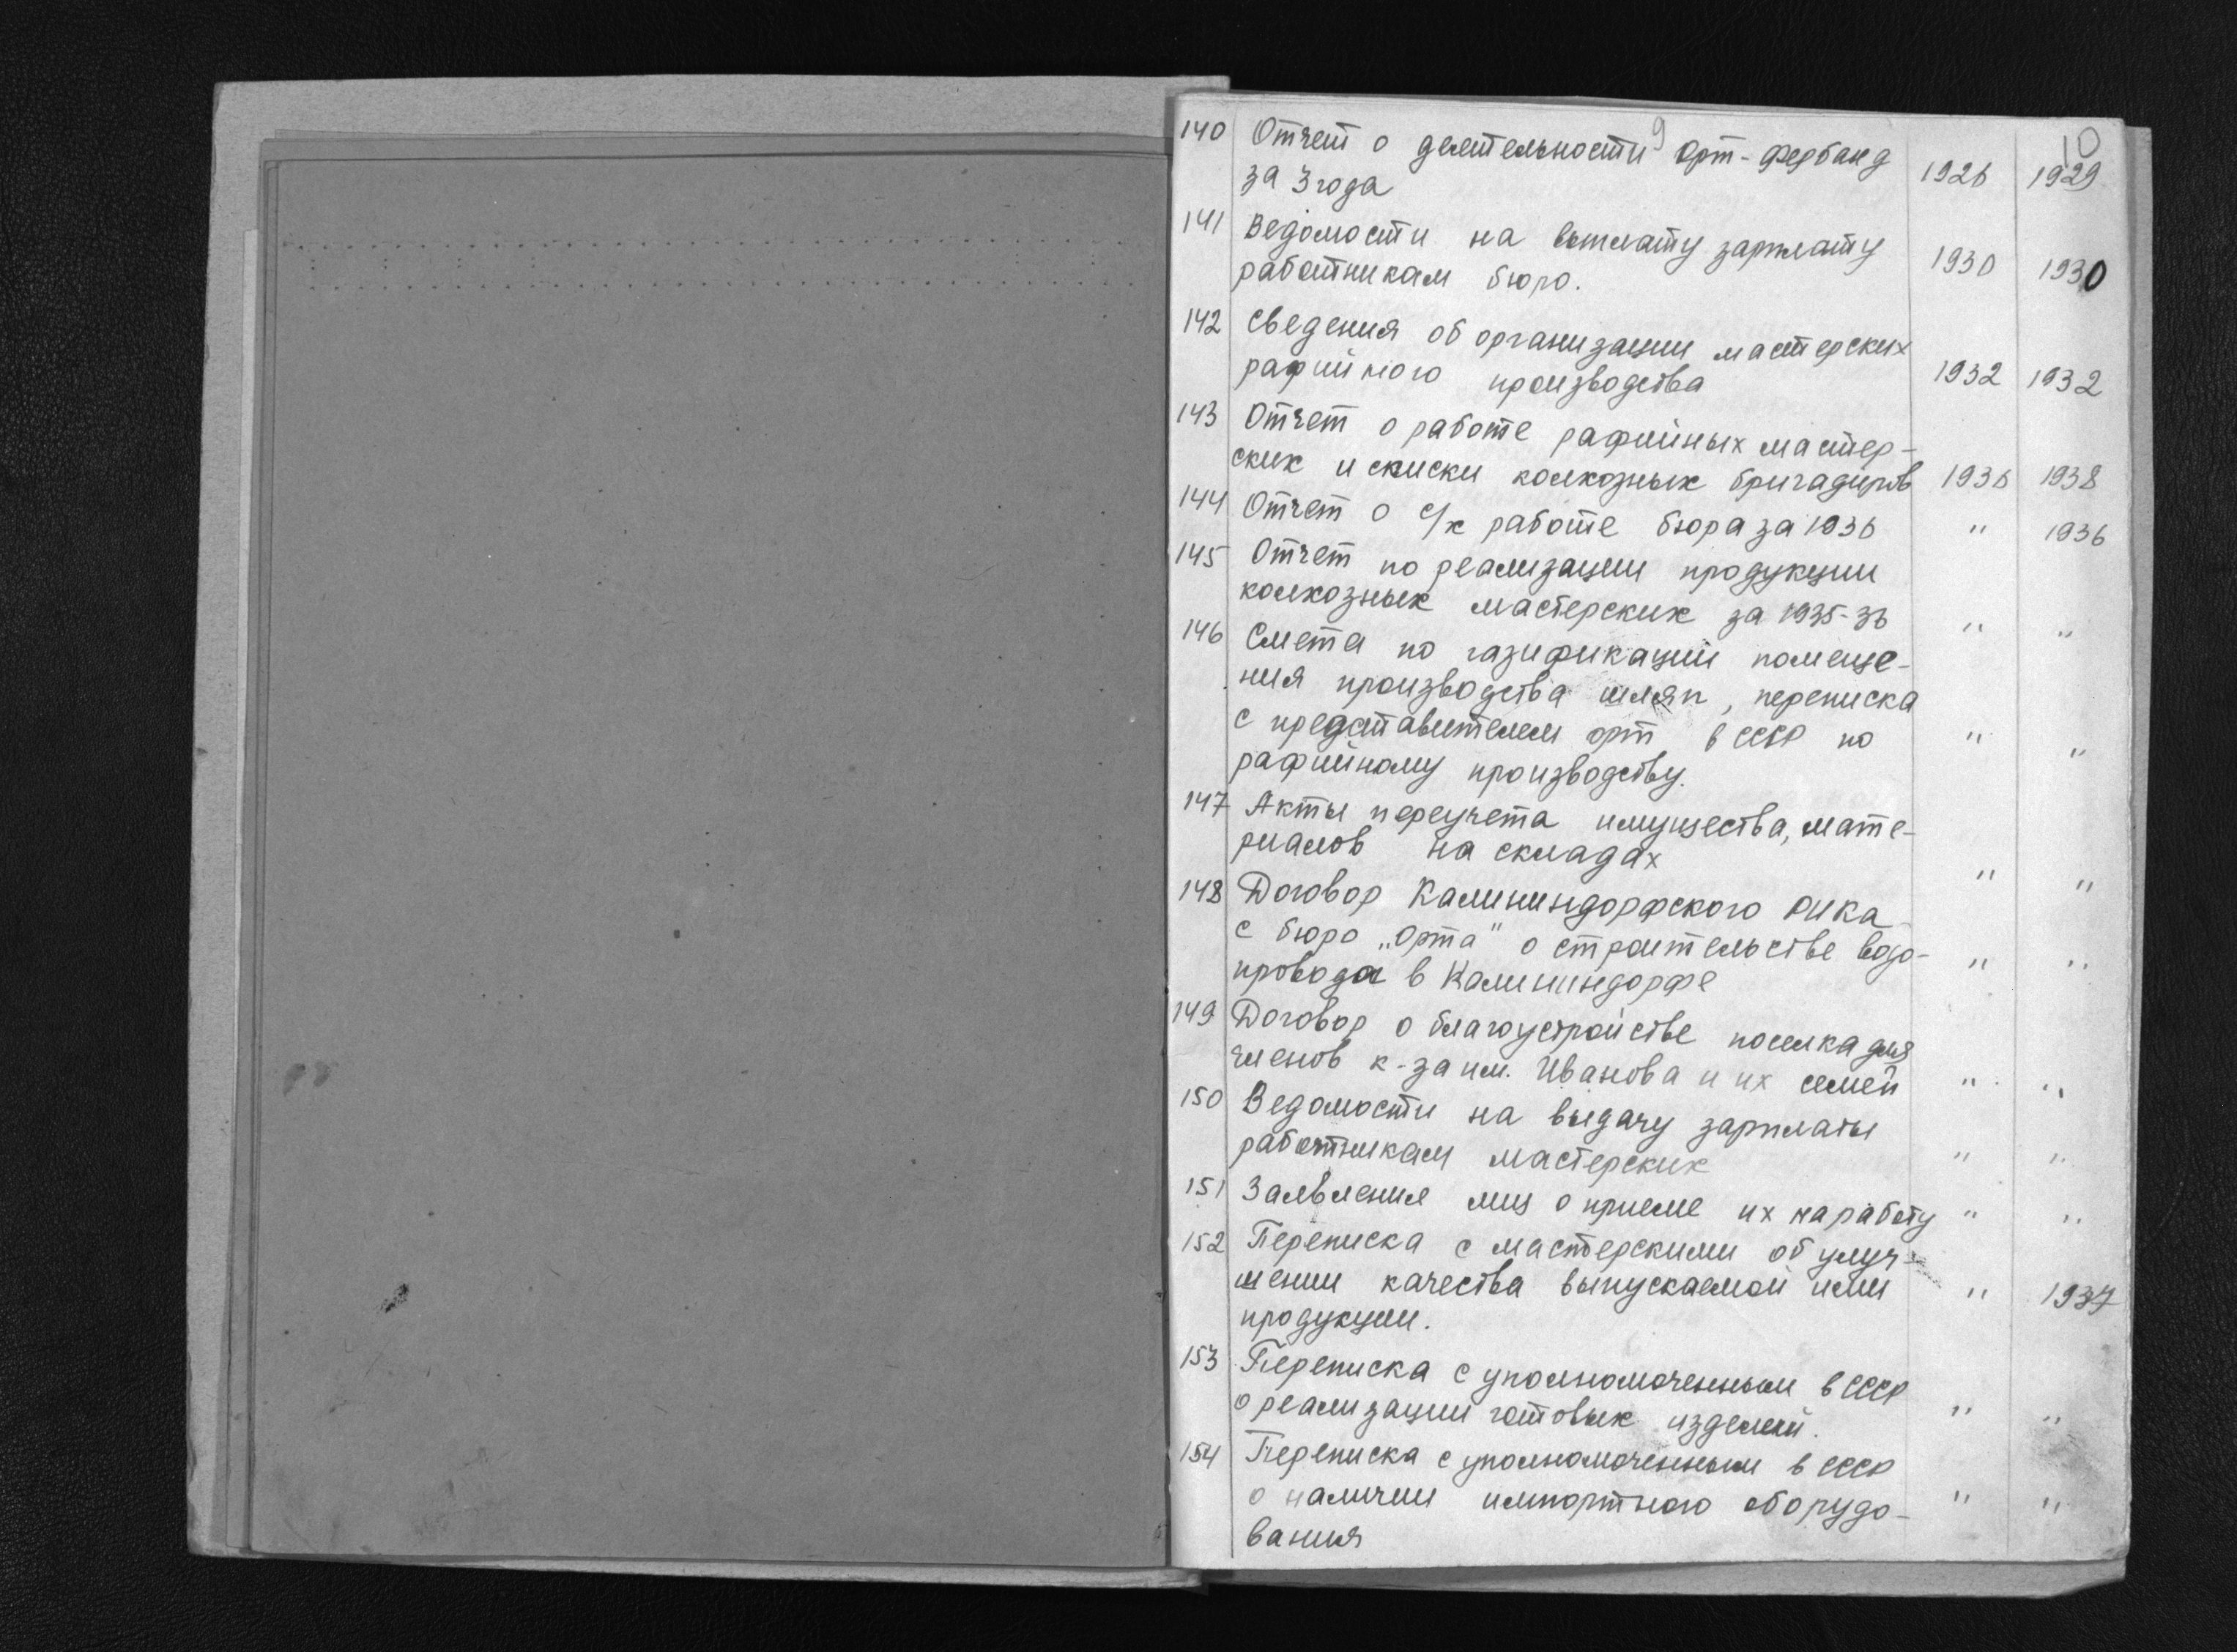 9 10
140 Отчет о деятельности Орт-Фербанд
за 3 года 1926 1929
141 Ведомости на выплату зарплату
работникам бюро. 1930 1930
142 Сведения об организации мастерских
рафийного производства 1932 1932
143 Отчет о работе рафийных мастер-
ских и списки колхозных бригадиров 1936 1938
144 Отчет о с/х работе бюра за 1936 " 1936
145 Отчет по реализации продукции
колхозных мастерских за 1935-36 " "
146 Смета по газификации помеще-
ния производства шляп, переписка
с представителем орт в СССР по " "
рафийному производству.
147 Акты переучета имущества, мате-
риалов на складах " "
148 Договор Калининдорфского РИКа
с бюро „Орта" о строительстве водо- " "
провода в Калининдорфе
149 Договор о благоустройстве поселка для
членов к-за им. Иванова и их семей " "
150 Ведомости на выдачу зарплаты
работникам мастерских " "
151 Заявления лиц о приеме их на работу " "
152 Переписка с мастерскими об улуч-
шении качества выпускаемой ими " 1937
продукции.
153 Переписка с уполномоченным в СССР
о реализации готовых изделий. " "
154 Переписка с уполномоченным в СССР
о наличии импортного оборудо- " "
вания